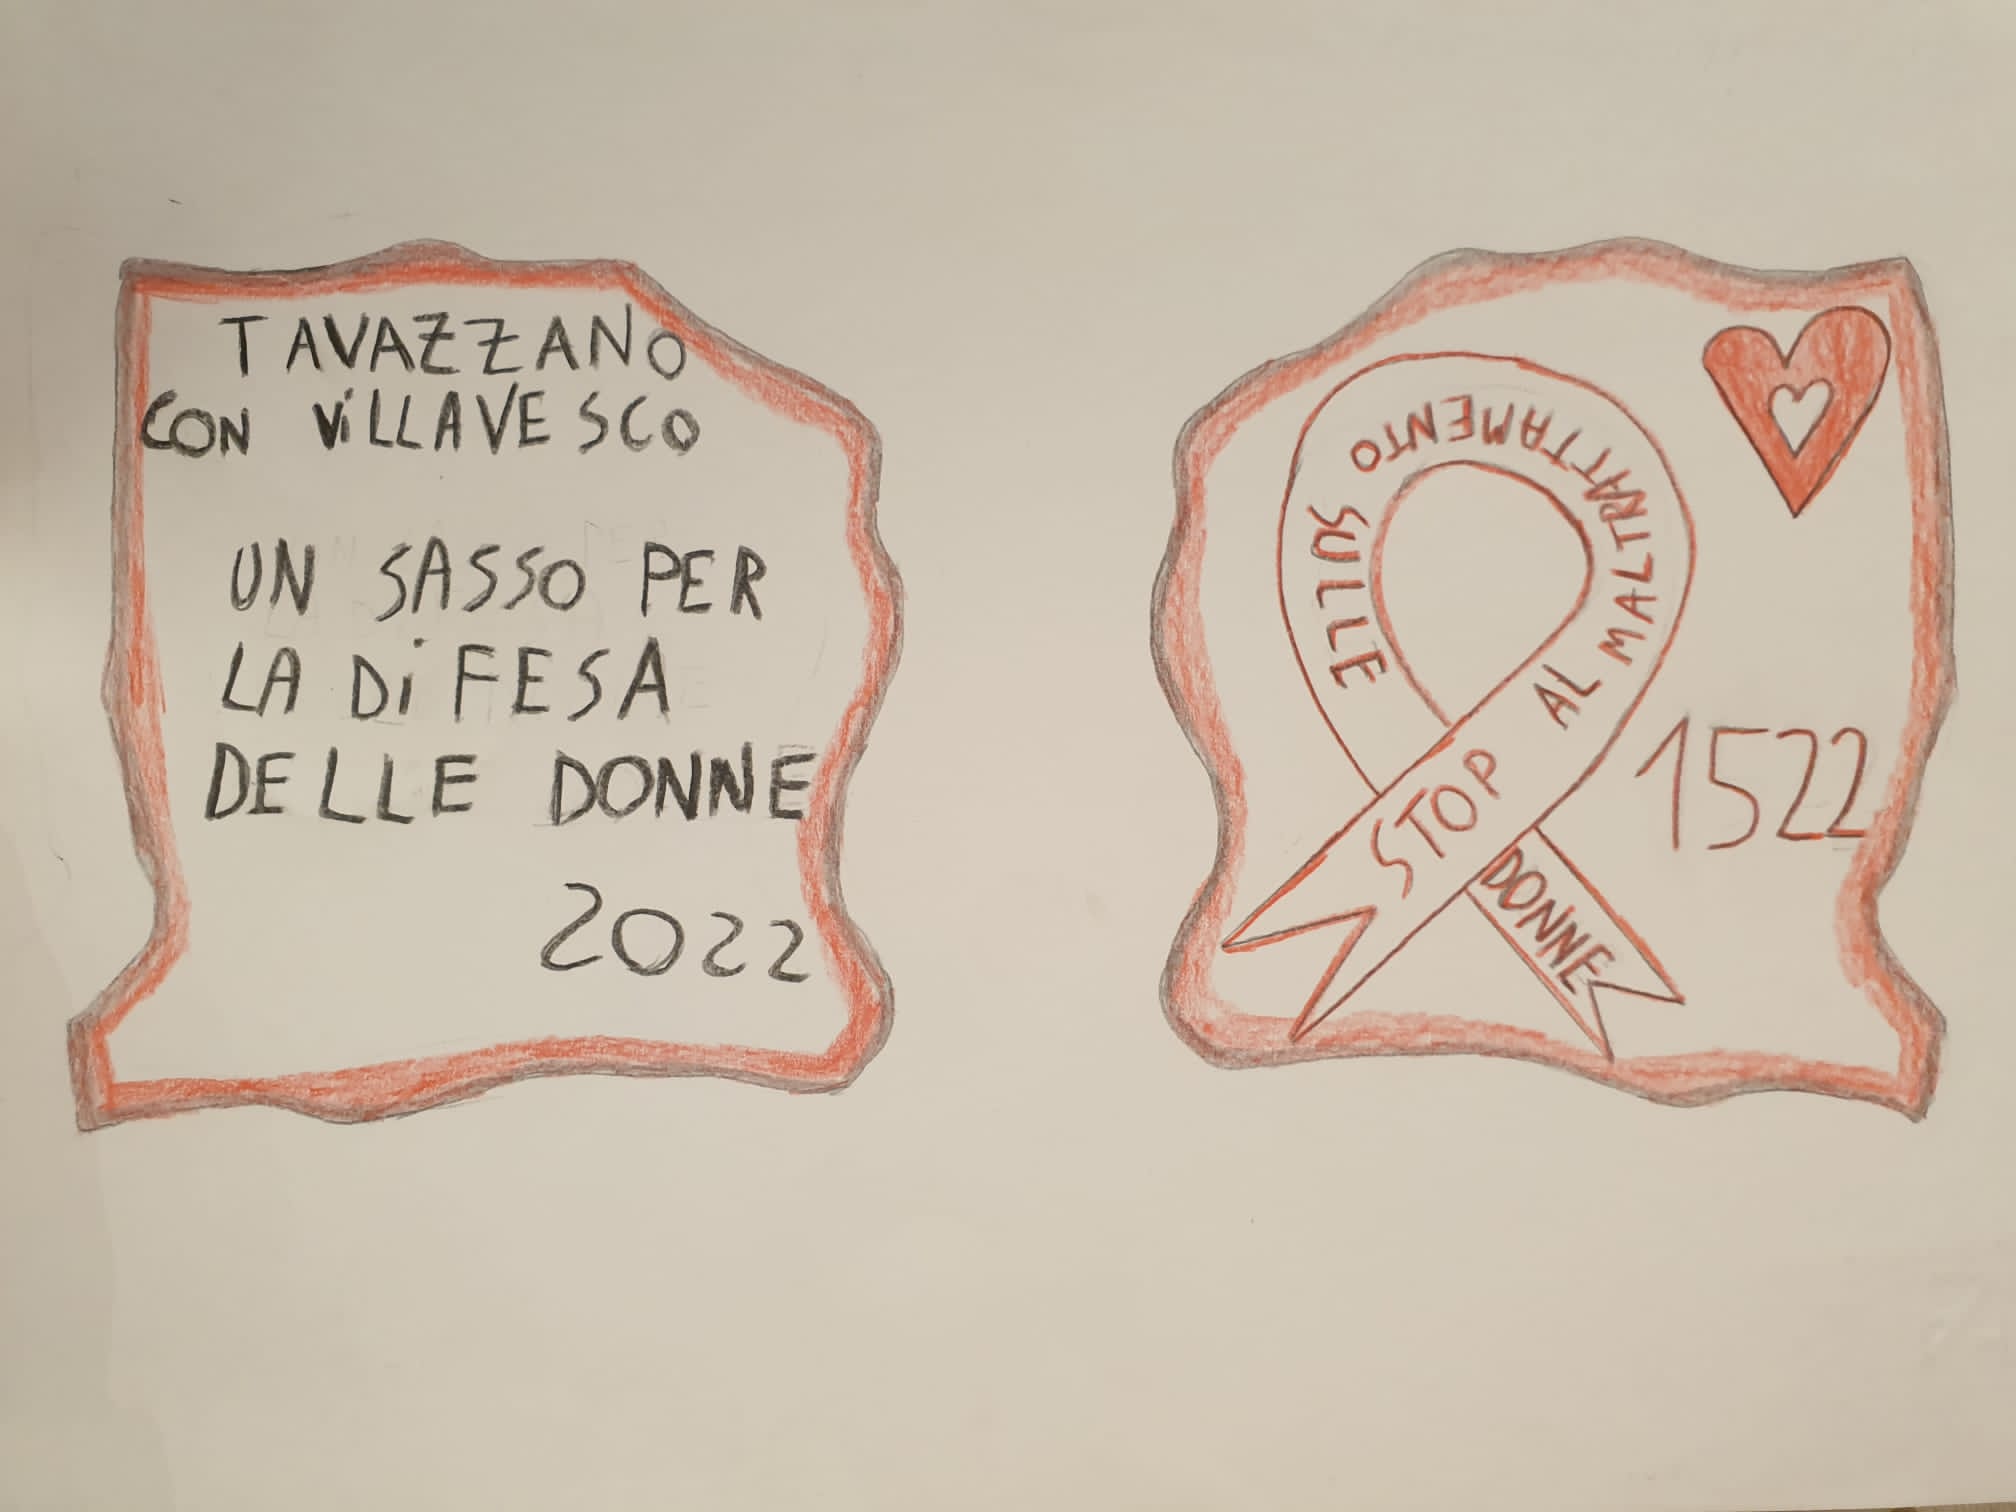 TAVAZZANO
CON ViLLAVESCO
UN SASSO PER
LA DiFESA
DELLE DONNE
2022
STOP AL MALTRATTAMENTO SULLE DONNE
1522